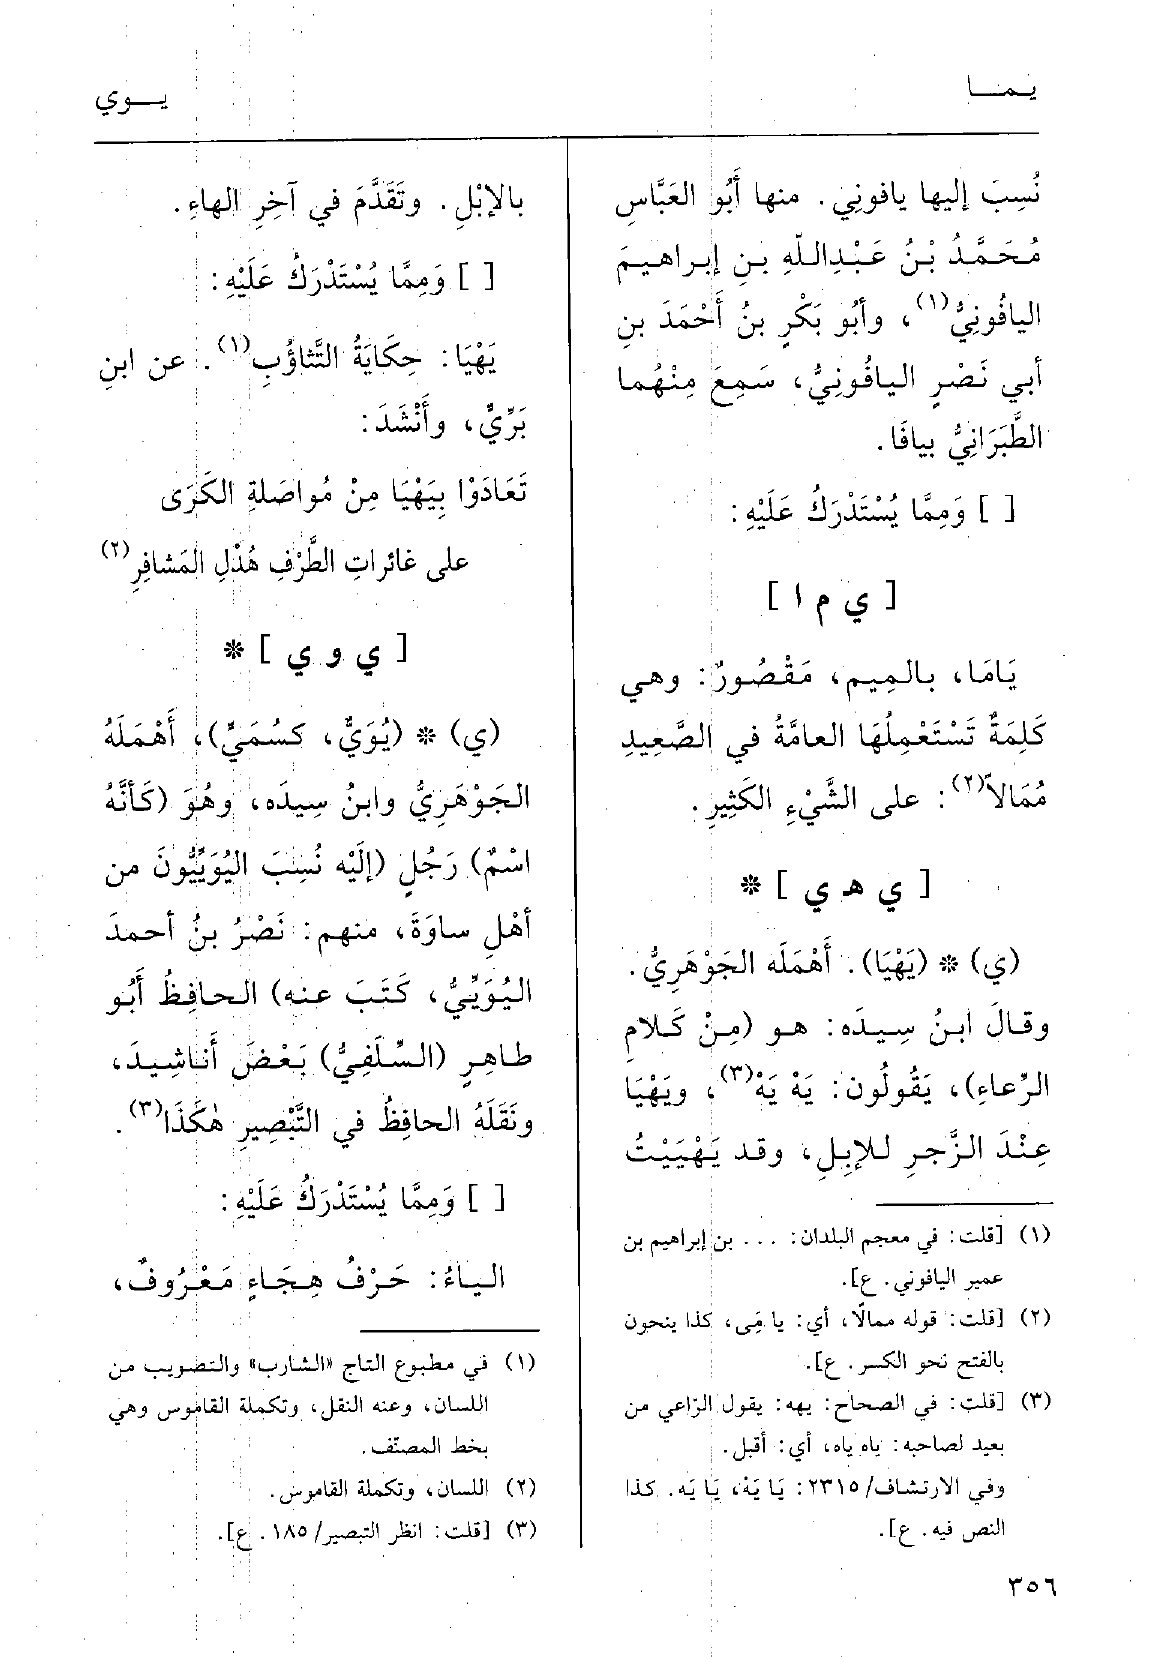 يمـــا
يـــوي
نُسِبَ إليها يافونِي. منها أَبُو العَبَّاسِ
مُحَمَّدُ بْنُ عَبْدِاللّهِ بنِ إبراهيمَ
اليافُونِيُّ(١)، وأبُو بَكْرٍ بنُ أَحْمَدَ بنِ
أبي نَصْرٍ اليافُونِيُّ، سَمِعَ مِنْهُما
الطَّبَرَانِيُّ بيافَا.
[ ] وَمِمَّا يُسْتَدْرَكُ عَلَيْهِ:
[ ي م ا ]
يَامَا، بالمِيم، مَقْصُورٌ: وهي
كَلِمَةٌ تَسْتَعْمِلُهَا العامَّةُ في الصَّعِيدِ
مُمَالاً(٢): على الشَّيْءِ الكَثِيرِ.
[ ي هـ ي ] *
(ي) * (يَهْيَا). أَهْمَلَه الجَوْهَرِيُّ.
وقالَ ابنُ سِيدَه: هو (مِنْ كَلامِ
الرِّعاءِ)، يَقُولُون: يَهْ يَهْ(٣)، ويَهْيَا
عِنْدَ الزَّجرِ للإبِلِ، وقد يَهْيَيْتُ
(١) [قلت: في معجم البلدان: ... بن إبراهيم بن
عمير اليافوني. ع].
(٢) [قلت: قوله ممالًا، أي: يا مِى، كذا ينحون
بالفتح نحو الكسر. ع].
(٣) [قلت: في الصحاح: يهه: يقول الرّاعي من
بعيد لصاحبه: ياه ياه، أي: أقبل.
وفي الارتشاف/٢٣١٥: يَا يَهْ، يَا يَه. كذا
النص فيه. ع].
بالإبْلِ. وتَقَدَّمَ في آخِرِ الهاءِ.
[ ] وَمِمَّا يُسْتَدْرَكُ عَلَيْهِ:
يَهْيَا: حِكَايَةُ التَّثاؤُبِ(١). عن ابنِ
بَرِّيٍّ، وأَنْشَدَ:
تَعَادَوْا بِيَهْيَا مِنْ مُواصَلةِ الكَرَى
على غائراتِ الطَّرْفِ هُدْلِ المَشافِرِ(٢)
[ ي و ي ] *
(ي) * (يُوَيٌّ، كسُمَيٍّ)، أَهْمَلَهُ
الجَوْهَرِيُّ وابنُ سِيدَه، وهُوَ (كَأنَّهُ
اسْمٌ) رَجُلٍ (إلَيْه نُسِبَ اليُوَيِّيُّونَ من
أهْلِ ساوَةَ، منهم: نَصْرُ بنُ أحمدَ
اليُوَيِّيُّ، كَتَبَ عنه) الحافِظُ أَبُو
طاهِرٍ (السِّلَفِيُّ) بَعْضَ أناشِيدَ،
ونَقَلَهُ الحافِظُ في التَّبْصِيرِ هٰكَذَا(٣).
[ ] وَمِمَّا يُسْتَدْرَكُ عَلَيْهِ:
الياءُ: حَرْفُ هِجَاءٍ مَعْرُوفٌ،
(١) في مطبوع التاج «الشارب» والتصويب من
اللسان، وعنه النقل، وتكملة القاموس وهي
بخط المصنّف.
(٢) اللسان، وتكملة القاموس.
(٣) [قلت: انظر التبصير/١٨٥. ع].
٣٥٦